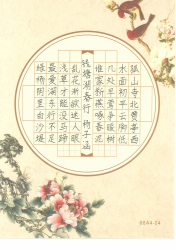 孤山寺北贾亭西
水面初平云脚低
几处早莺争暖树
谁家新燕啄春泥
钱塘湖春行 杨子涵
乱花渐欲迷人眼
浅草才能没马蹄
最爱湖东行不足
绿杨阴里白沙堤